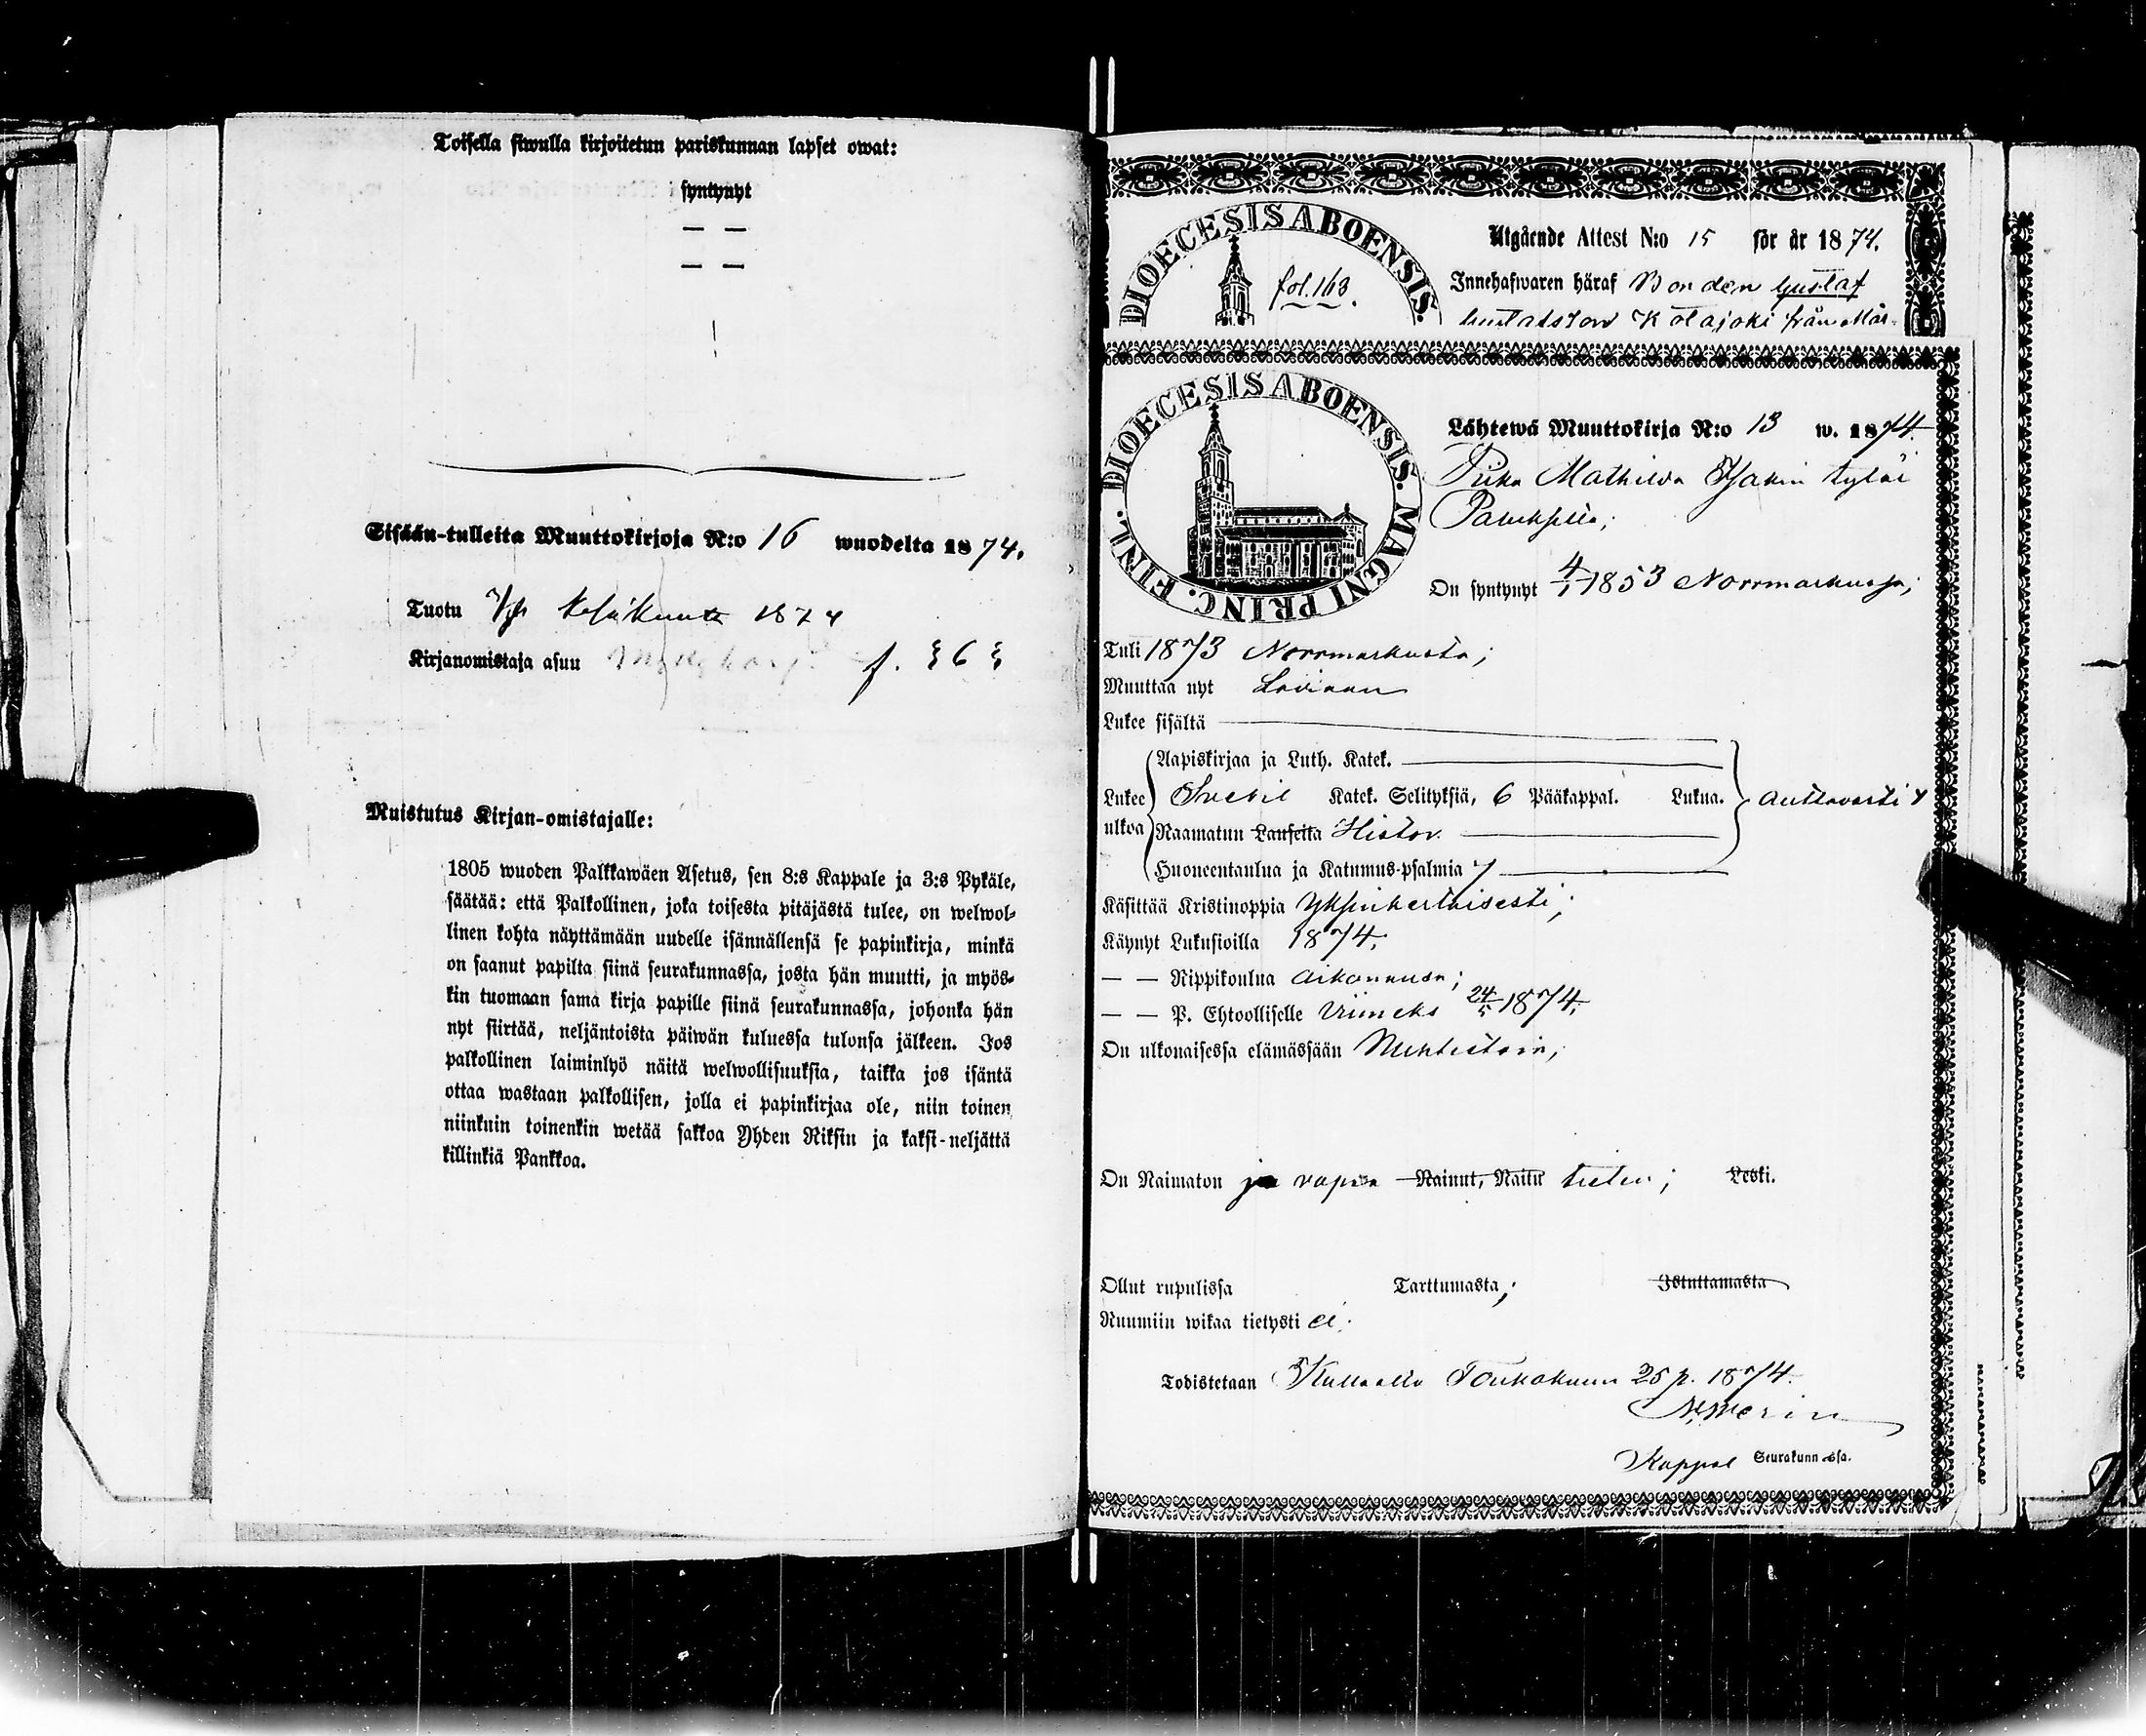 Toisella siwulla kirjoitetun pariskunnan lapset owat:
syntynyt
— —
— —
Sisään-tulleita Muuttokirjoja N:o 16 wuodelta 1874.
Tuotu Kesäkuuta 1874
Kirjanomistaja asuu f. 363
Muistutus Kirjan-omistajalle:
1805 wuoden Palkkawäen Asetus, sen 8:s Kappale ja 3:s Pykäle,
säätää: että Palkollinen, joka toisesta pitäjästä tulee, on welwol-
linen kohta näyttämään uudelle isännällensä se papinkirja, minkä
on saanut papilta siinä seurakunnassa, josta hän muutti, ja myös-
kin tuomaan sama kirja papille siinä seurakunnassa, johonka hän
nyt siirtää, neljäntoista päiwän kuluessa tulonsa jälkeen. Jos
palkollinen laiminlyö näitä welwollisuuksia, taikka jos isäntä
ottaa wastaan palkollisen, jolla ei papinkirjaa ole, niin toinen
niinkuin toinenkin wetää sakkoa Yhden Riksin ja kaksi-neljättä
killinkiä Pankkoa.
DIOECESIS ABOENSIS.
fol. 163.
Utgående Attest N:o 15 för år 1874.
Innehafwaren häraf Bonden Gustaf
Gustafsson Kolajoki från
DIOECESIS ABOENSIS. MAGNI PRINC. FINL.
Lähtewä Muuttokirja N:o 13 w. 1874.
Piika Mathilda
On syntynyt 4/1 1853 Norrmarkussa;
Tuli 1873 Norrmarkusta;
Muuttaa nyt Lawiaan
Lukee sisältä
Lukee ulkoa
Aapiskirjaa ja Luth. Katek.
Svebil Katek. Selityksiä, 6 Pääkappal. Lukua. auttavasti
Raamatun Lauseita Histor.
Huoneentaulua ja Katumus-psalmia 7
Käsittää Kristinoppia Yksinkertaisesti;
Käynyt Lukusioilla 1874;
— — Rippikoulua aikanansa;
— — P. Ehtoolliselle viimeks 24/5 1874;
On ulkonaisessa elämässään Nuhteetoin;
On Naimaton ja vapaa Nainut, Naitu tieten; Leski.
Ollut rupulissa Tarttumasta; Istuttamasta
Ruumiin wikaa tietysti ei.
Todistetaan Kullaalla Toukokuun 25 p. 1874.
Kappal Seurakunnassa.